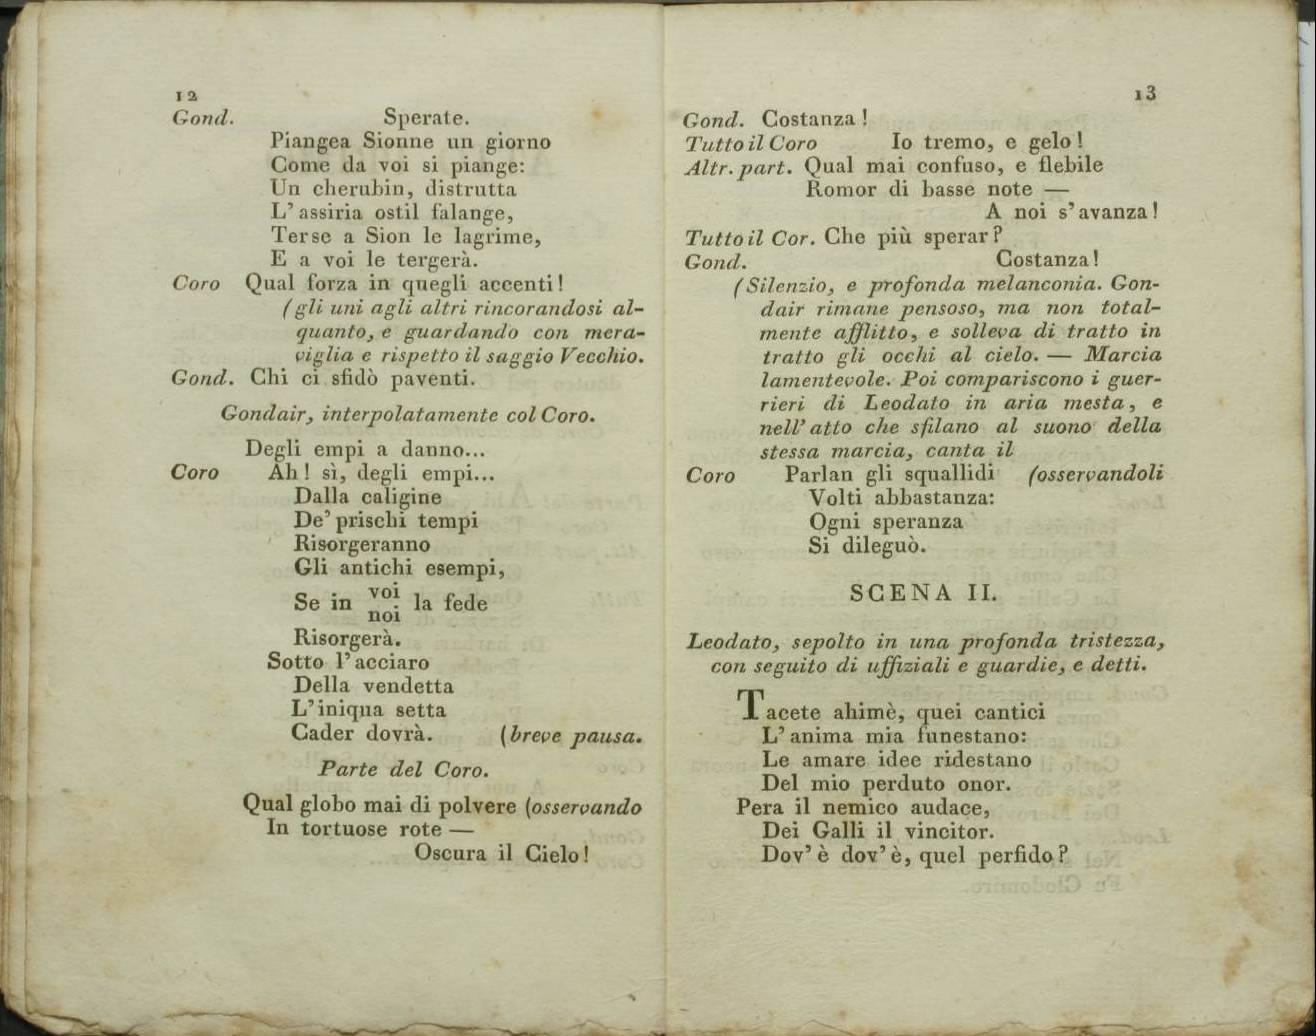 12
Gond. Sperate.
Piangea Sionne un giorno
Come da voi si piange:
Un cherubin, distrutta
L'assiria ostil falange,
Terse a Sion le lagrime,
E a voi le tergerà.
Coro Qual forza in quegli accenti!
(gli uni agli altri rincorandosi al-
quanto, e guardando con mera-
viglia e rispetto il saggio Vecchio.
Gond. Chi ci sfidò paventi.
Gondair, interpolatamente col Coro.
Degli empi a danno...
Coro Ah! sì, degli empi...
Dalla caligine
De' prischi tempi
Risorgeranno
Gli antichi esempi,
Se in voi la fede
noi
Risorgerà.
Sotto l'acciaro
Della vendetta
L'iniqua setta
Cader dovrà. (breve pausa.
Parte del Coro.
Qual globo mai di polvere (osservando
In tortuose rote —
Oscura il Cielo!
13
Gond. Costanza!
Tutto il Coro Io tremo, e gelo!
Altr. part. Qual mai confuso, e flebile
Romor di basse note —
A noi s'avanza!
Tutto il Cor. Che più sperar?
Gond. Costanza!
(Silenzio, e profonda melanconia. Gon-
dair rimane pensoso, ma non total-
mente afflitto, e solleva di tratto in
tratto gli occhi al cielo. — Marcia
lamentevole. Poi compariscono i guer-
rieri di Leodato in aria mesta, e
nell'atto che sfilano al suono della
stessa marcia, canta il
Coro Parlan gli squallidi (osservandoli
Volti abbastanza:
Ogni speranza
Si dileguò.
SCENA II.
Leodato, sepolto in una profonda tristezza,
con seguito di uffiziali e guardie, e detti.
Tacete ahimè, quei cantici
L'anima mia funestano:
Le amare idee ridestano
Del mio perduto onor.
Pera il nemico audace,
Dei Galli il vincitor.
Dov'è dov'è, quel perfido?